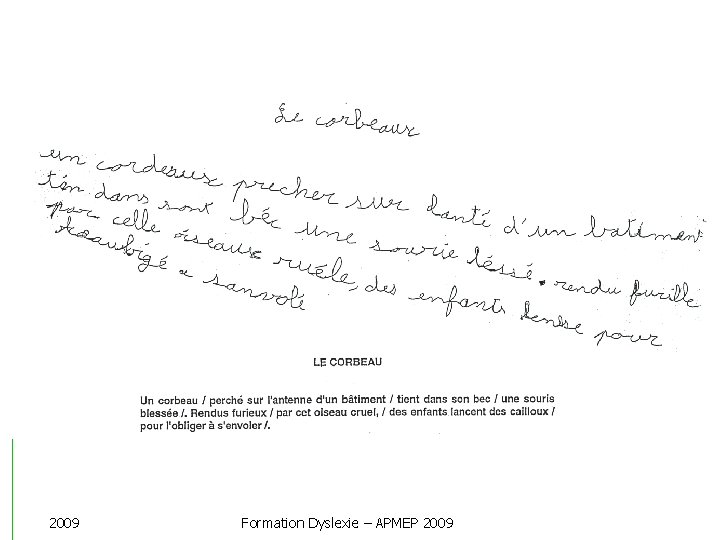 Le corbeaux
un cordeaux precher sur danté d'un batiment
tén dans sont béc une sourie léssé. rendu furille
par celle oiseaux ruéle, des enfants lense pour
aubigé a sanvolé
LE CORBEAU
Un corbeau / perché sur l'antenne d'un bâtiment / tient dans son bec / une souris
blessée /. Rendus furieux / par cet oiseau cruel, / des enfants lancent des cailloux /
pour l'obliger à s'envoler /.
2009
Formation Dyslexie – APMEP 2009